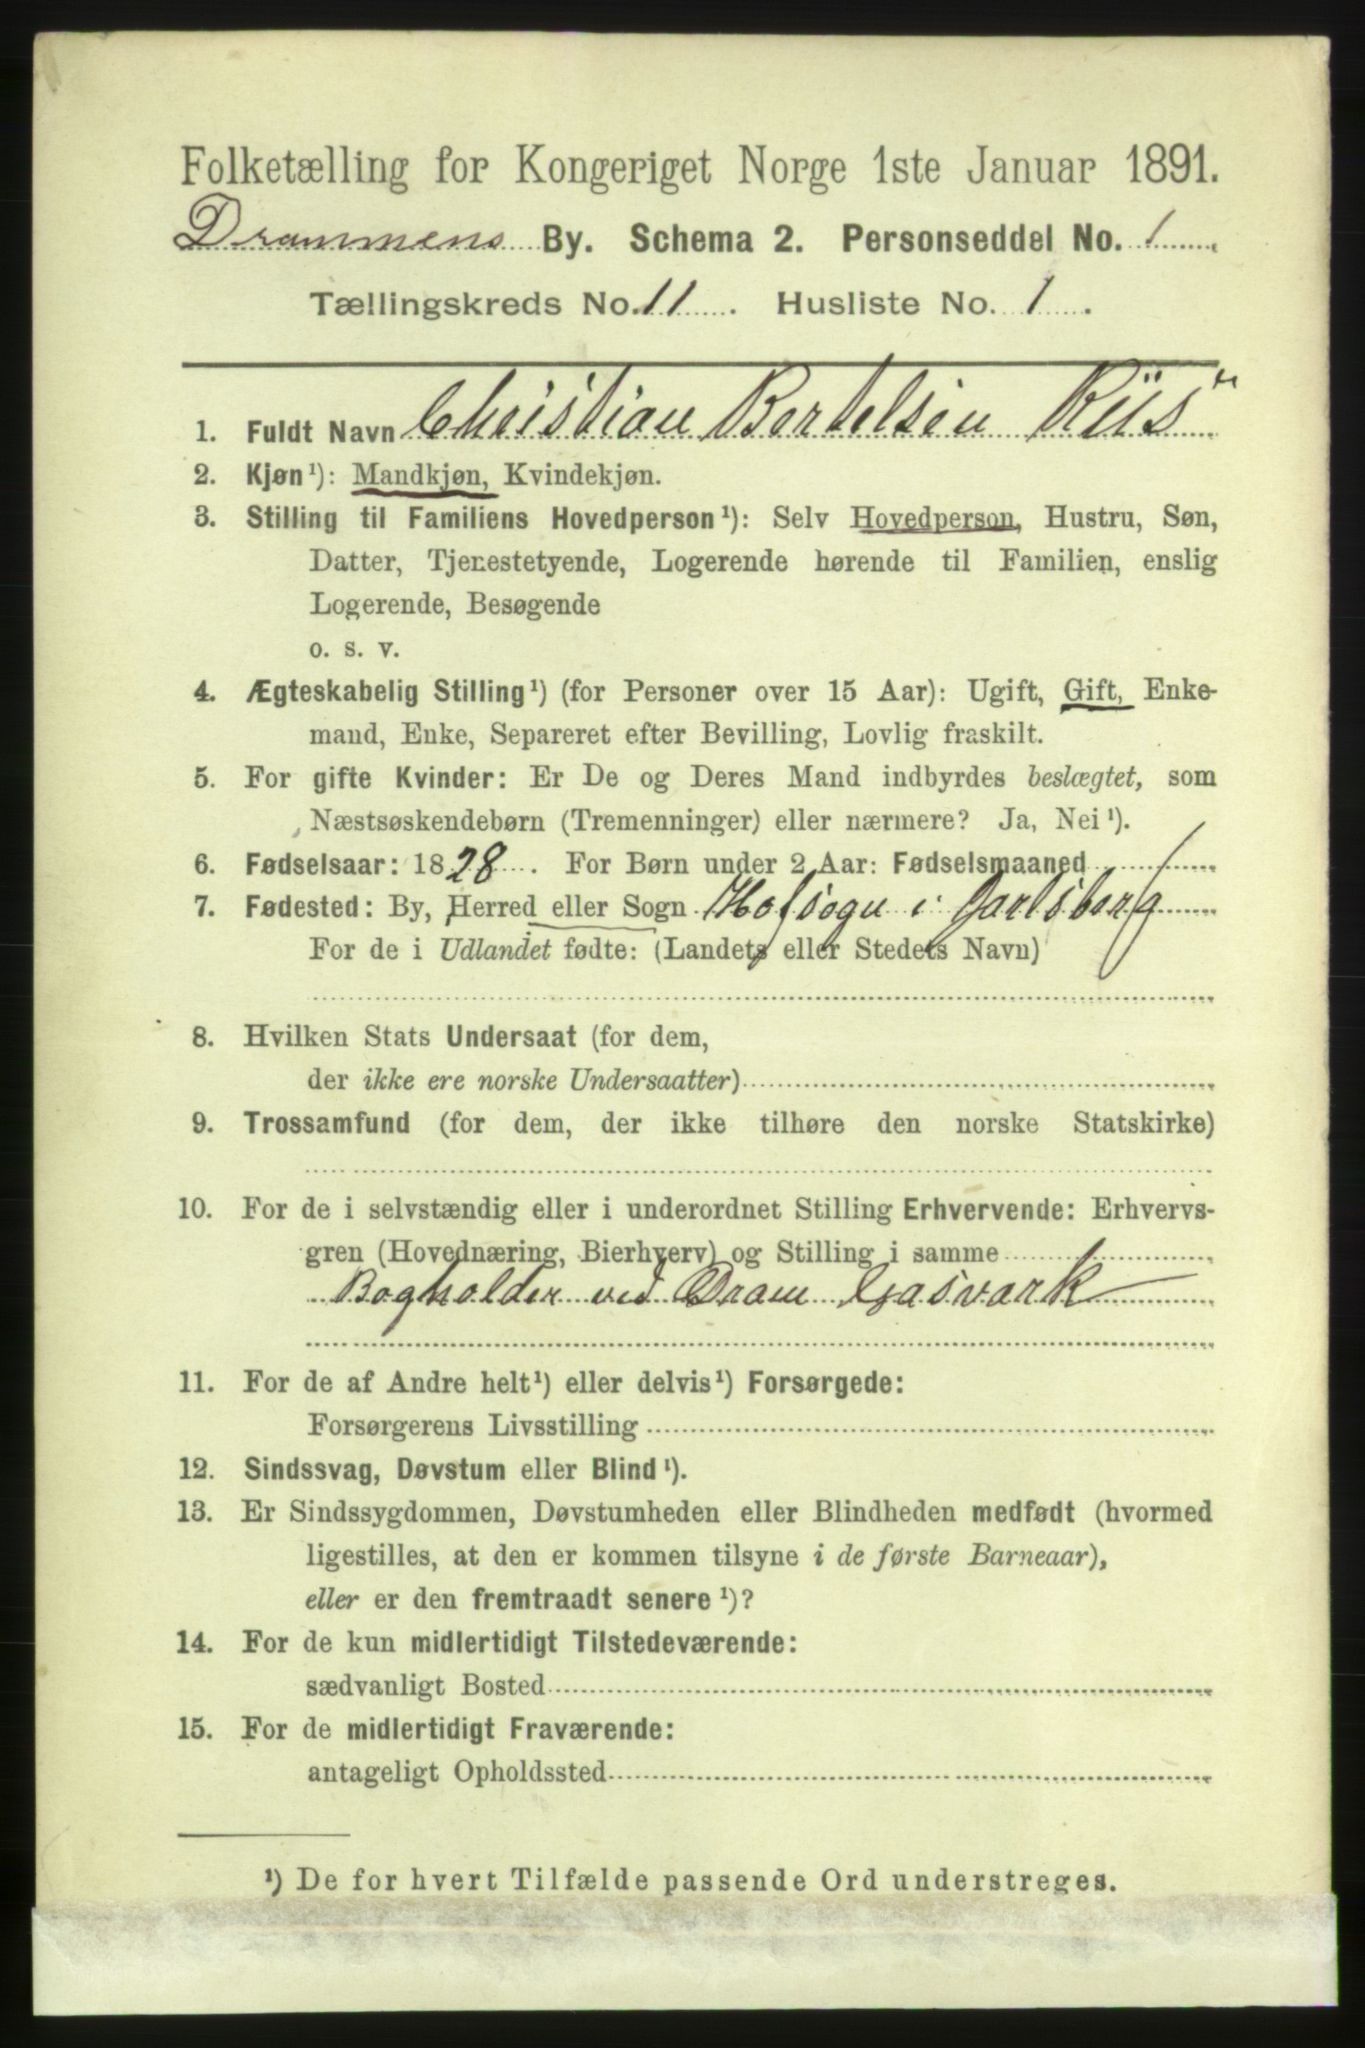 Folketælling for Kongeriget Norge 1ste Januar 1891.
Drammens By. Schema 2. Personseddel No. 1
Tællingskreds No. 11. Husliste No. 1.
1. Fuldt Navn Christian Bertelsen Riis
2. Kjøn¹): Mandkjøn, Kvindekjøn.
3. Stilling til Familiens Hovedperson¹): Selv Hovedperson, Hustru, Søn,
Datter, Tjenestetyende, Logerende hørende til Familien, enslig
Logerende, Besøgende
o. s. v.
4. Ægteskabelig Stilling¹) (for Personer over 15 Aar): Ugift, Gift, Enke-
mand, Enke, Separeret efter Bevilling, Lovlig fraskilt.
5. For gifte Kvinder: Er De og Deres Mand indbyrdes beslægtet, som
Næstsøskendebørn (Tremenninger) eller nærmere? Ja, Nei¹).
6. Fødselsaar: 1828. For Børn under 2 Aar: Fødselsmaaned
7. Fødested: By, Herred eller Sogn Hofsogn i Jarlsberg
For de i Udlandet fødte: (Landets eller Stedets Navn)
8. Hvilken Stats Undersaat (for dem,
der ikke ere norske Undersaatter)
9. Trossamfund (for dem, der ikke tilhøre den norske Statskirke)
10. For de i selvstændig eller i underordnet Stilling Erhvervende: Erhvervs-
gren (Hovednæring, Bierhverv) og Stilling i samme
Bogholder ved Dram Gasværk
11. For de af Andre helt¹) eller delvis¹) Forsørgede:
Forsørgerens Livsstilling
12. Sindssvag, Døvstum eller Blind¹).
13. Er Sindssygdommen, Døvstumheden eller Blindheden medfødt (hvormed
ligestilles, at den er kommen tilsyne i de første Barneaar),
eller er den fremtraadt senere¹)?
14. For de kun midlertidigt Tilstedeværende:
sædvanligt Bosted
15. For de midlertidigt Fraværende:
antageligt Opholdssted
¹) De for hvert Tilfælde passende Ord understreges.